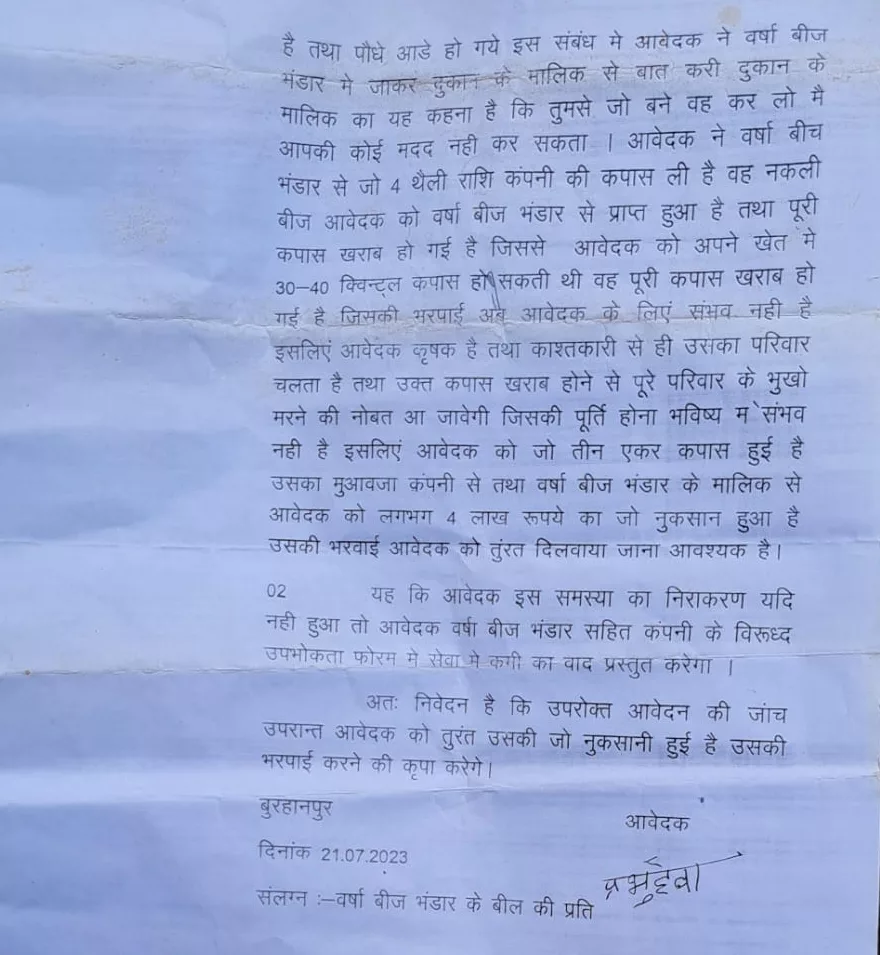 है तथा पौधे आडे हो गये इस संबंध मे आवेदक ने वर्षा बीज
भंडार मे जाकर दुकान के मालिक से बात करी दुकान के
मालिक का यह कहना है कि तुमसे जो बने वह कर लो मै
आपकी कोई मदद नही कर सकता । आवेदक ने वर्षा बीच
भंडार से जो 4 थैली राशि कंपनी की कपास ली है वह नकली
बीज आवेदक को वर्षा बीज भंडार से प्राप्त हुआ है तथा पूरी
कपास खराब हो गई है जिससे आवेदक को अपने खेत मे
30–40 क्विन्ट्ल कपास हो सकती थी वह पूरी कपास खराब हो
गई है जिसकी भरपाई अब आवेदक के लिएं संभव नही है
इसलिएं आवेदक कृषक है तथा काश्तकारी से ही उसका परिवार
चलता है तथा उक्त कपास खराब होने से पूरे परिवार के भुखो
मरने की नोबत आ जावेगी जिसकी पूर्ति होना भविष्य मे संभव
नही है इसलिएं आवेदक को जो तीन एकर कपास हुई है
उसका मुआवजा कंपनी से तथा वर्षा बीज भंडार के मालिक से
आवेदक को लगभग 4 लाख रूपये का जो नुकसान हुआ है
उसकी भरवाई आवेदक को तुंरत दिलवाया जाना आवश्यक है।
02 यह कि आवेदक इस समस्या का निराकरण यदि
नही हुआ तो आवेदक वर्षा बीज भंडार सहित कंपनी के विरूध्द
उपभोकता फोरम मे सेवा मे कमी का वाद प्रस्तुत करेगा ।
अतः निवेदन है कि उपरोक्त आवेदन की जांच
उपरान्त आवेदक को तुरंत उसकी जो नुकसानी हुई है उसकी
भरपाई करने की कृपा करेगे।
बुरहानपुर
आवेदक
दिनांक 21.07.2023
संलग्न :–वर्षा बीज भंडार के बील की प्रति